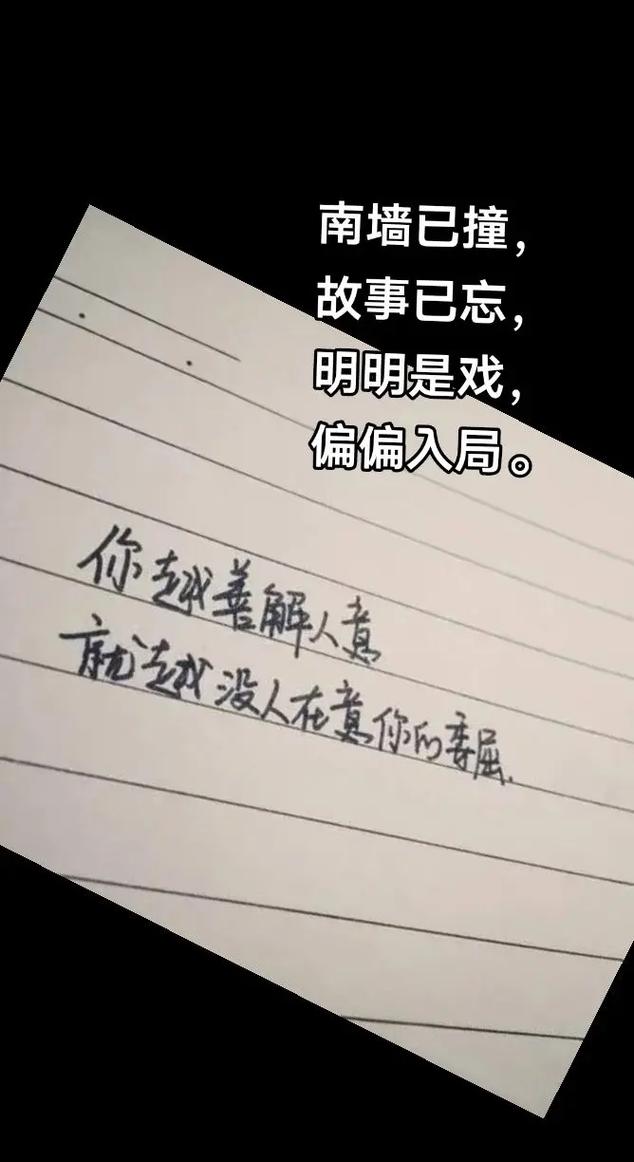 南墙已撞，
故事已忘，
明明是戏，
偏偏入局。
你越善解人意
就越没人在意你的委屈.